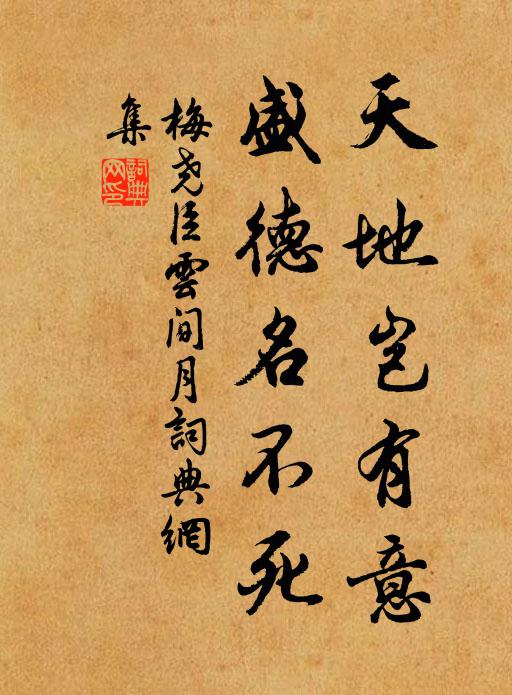 天地岂有意
盛德名不死
梅尧臣雲间月詞典網
集
詞典
网印